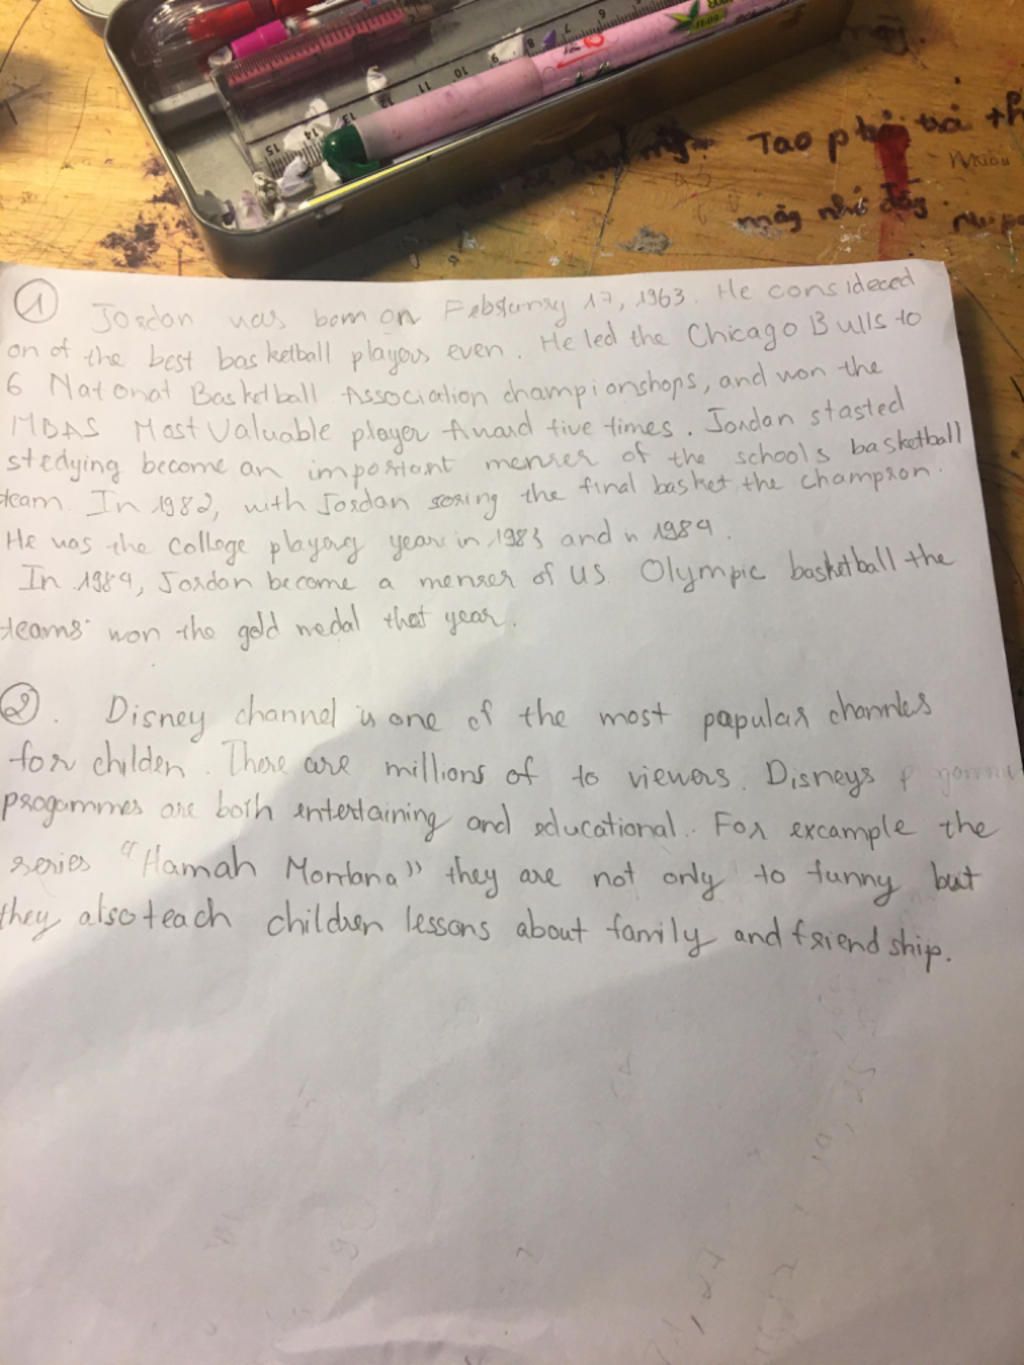 15 14 13 12 11 10 9 8 7 6
Tao phải trả th
Nhiều
mày như đây
① Jordon was born on Febsuray 17, 1963. He consideced
on of the best basketball playous even. He led the Chicago Bulls to
6 Natonat Basketball Association championshops, and won the
MBAS Most Valuable player Anard five times. Jordan stasted
stedying become an impostant menser of the schools basketball
team. In 1982, with Josdan sosing the final basket the champson.
He was the College playerg year in 1983 and in 1984.
In 1984, Josdan become a menser of US. Olympic basketball the
teams won the gold medal that year.
②. Disney channel is one of the most papular channles
for childen. There are millions of to viewers. Disneys
psogammes are both entertaining and educational. For excample the
series "Hamah Montana" they are not only to funny but
they also teach children lessons about family and friend ship.